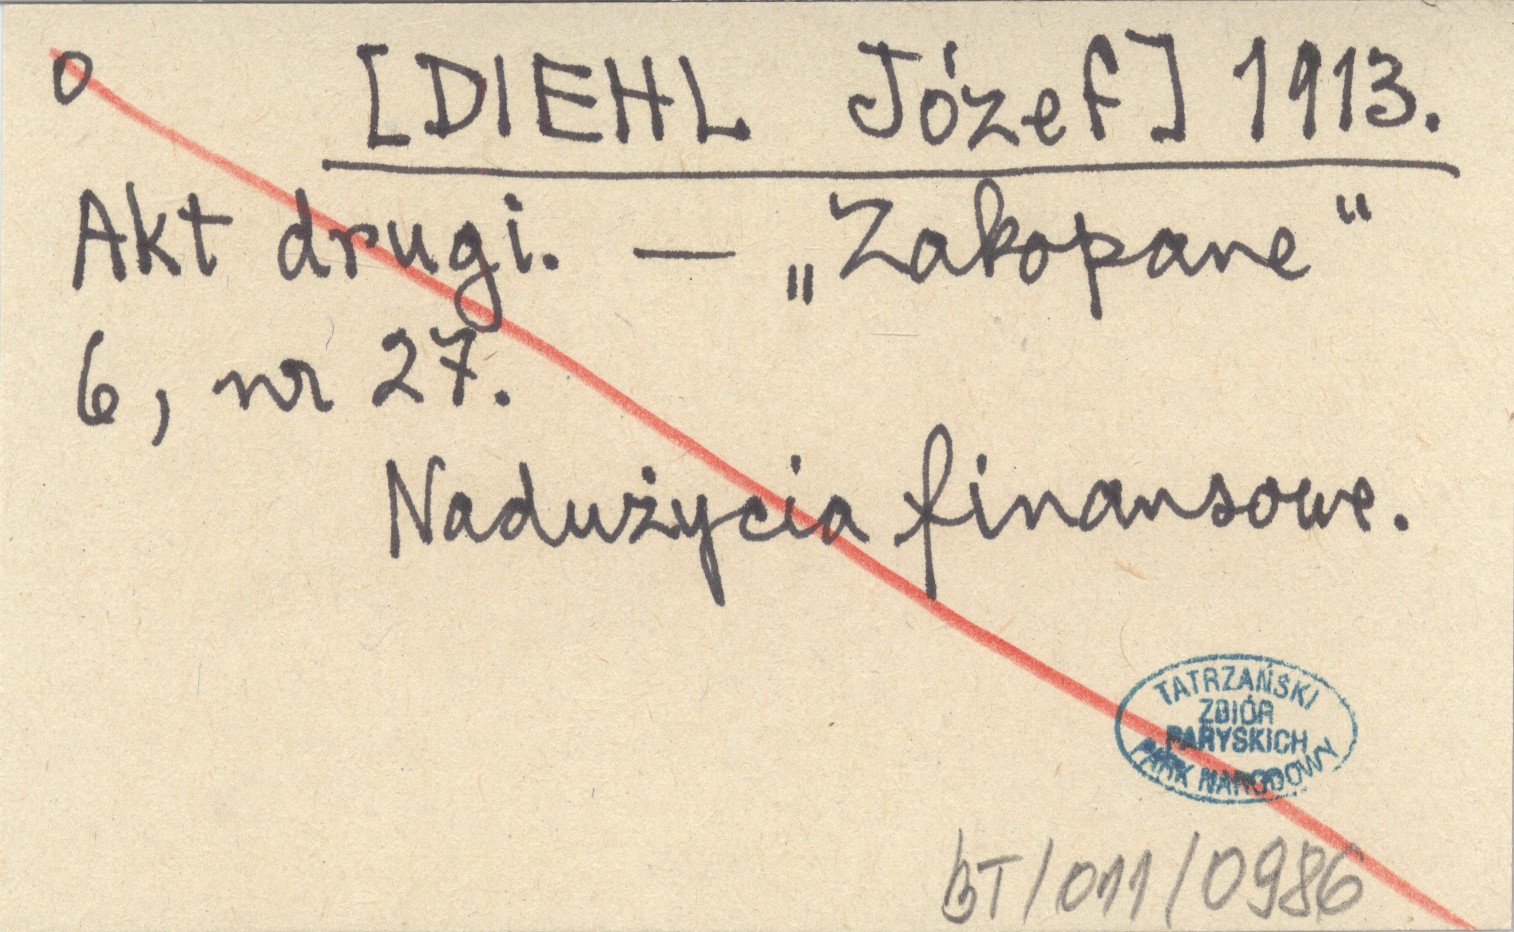 o [DIEHL Józef] 1913.
Akt drugi. — „Zakopane“
6, nr 27.
Nadużycia finansowe.
TATRZAŃSKI
ZBIÓR
PARYSKICH
PARK NARODOWY
BT/011/0986